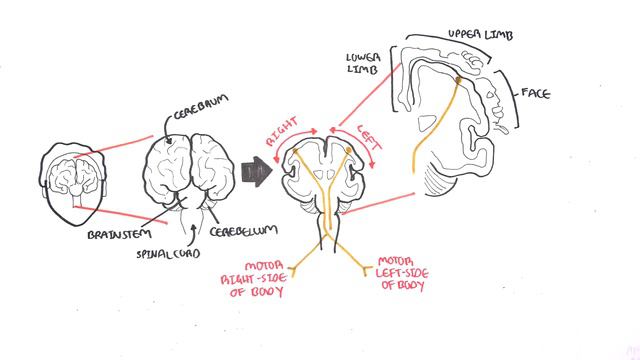 UPPER LIMB
LOWER
LIMB
FACE
CEREBRUM
RIGHT
LEFT
BRAINSTEM
SPINAL CORD
CEREBELLUM
MOTOR
RIGHT-SIDE
OF BODY
MOTOR
LEFT-SIDE
OF BODY